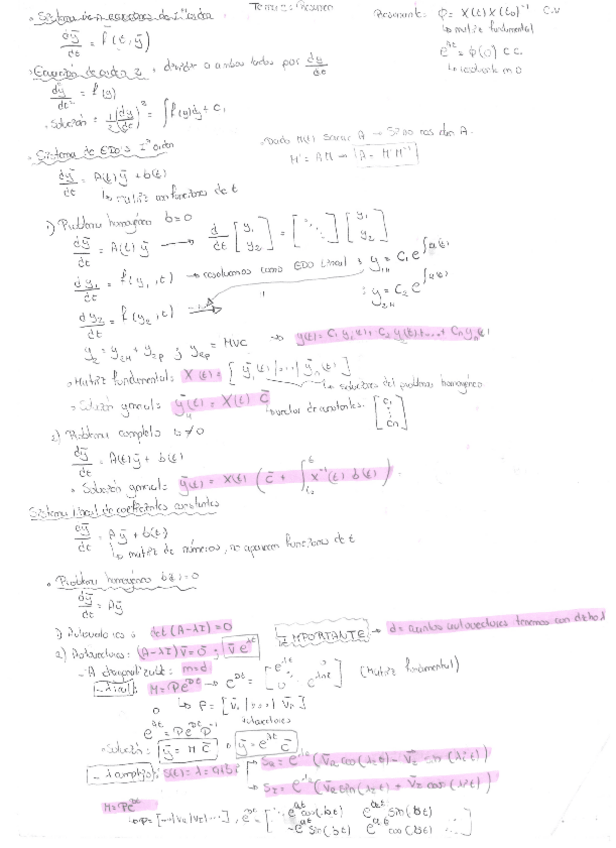 Tema 2: Resumen
· Sistema de n ecuaciones de 1er orden
dȳ/dt = f̄(t, ȳ)
Resolvente: φ = X(t) X(t₀)⁻¹ C.V
↳ matriz fundamental
e^{At} = φ(0) C.C.
↳ resolvente en 0
· Ecuación de orden 2, a ambos lados por dy/dt
d²y/dt² = f(y)
· Solución: 1/2 (dy/dt)² = ∫ f(y) dy + C₁
· Dado M(t) sacar A → Si no nos dan A.
M' = AM → A = M' M⁻¹
· Sistema de EDO's 1er orden
dȳ/dt = A(t) ȳ + b(t)
↳ matriz con funciones de t
1) Problema homogéneo b = 0
dȳ/dt = A(t) ȳ → d/dt [y₁ y₂] = [⋱] [y₁ y₂]
dy₁/dt = f(y₁, t) → resolvemos como EDO lineal : y₁ₕ = C₁ e^{∫a(t)}
dy₂/dt = f(y₂, t) → : y₂ₕ = C₂ e^{∫a(t)}
y₂ = y₂ₕ + y₂ₚ ; y₂ₚ = MVC → y(t) = C₁ y₁(t) + C₂ y₂(t) + ... + Cₙ yₙ(t)
· Matriz fundamental: X(t) = [ȳ₁(t) | ... | ȳₙ(t)]
↳ soluciones del problema homogéneo
· Solución general: ȳₕ(t) = X(t) C̄
↳ vector de constantes. [C₁ ⋮ Cₙ]
2) Problema completo b ≠ 0
dȳ/dt = A(t) ȳ + b(t)
· Solución general: ȳ(t) = X(t) (C̄ + ∫_{t₀}^{t} X⁻¹(t) b(t))
Sistema lineal de coeficientes constantes
dȳ/dt = A ȳ + b(t)
↳ matriz de números, no aparecen funciones de t
· Problema homogéneo b(t) = 0
dȳ/dt = Aȳ
1) Autovalores: det(A - λI) = 0
IMPORTANTE → d = cuantos autovectores tenemos con dicho λ
2) Autovectores: (A - λI) v̄ = 0̄ ; v̄ e^{λt}
- A diagonalizable: m = d
- λ real: M = P e^{Dt} → e^{Dt} = [e^{λ₁t} 0 0 e^{λₙt}] (Matriz fundamental)
↳ P = [v̄₁ | ... | v̄ₙ]
autovectores
e^{At} = P e^{Dt} P⁻¹
· Solución: ȳ = M C̄ o ȳ = e^{At} C̄
- λ complejo: λ = a ± bi
M = P e^{Dt}
↳ P = [...], e^{Dt} = [⋱ e^{at} cos(bt) e^{at} sin(bt) -e^{at} sin(bt) e^{at} cos(bt) ⋱]